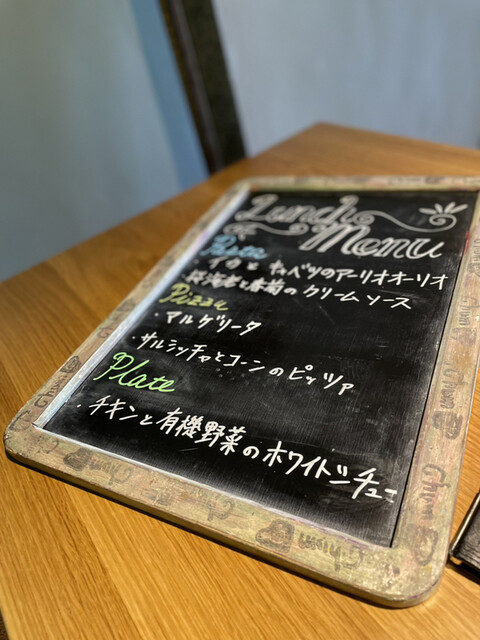 Lunch
Menu
Pasta
イカとキャベツのアーリオオーリオ
・桜海老と春菊のクリームソース
Pizza
・マルゲリータ
・サルシッチャとコーンのピッツァ
Plate
・チキンと有機野菜のホワイトシチュー
Chum
Chum
Chum
Chum